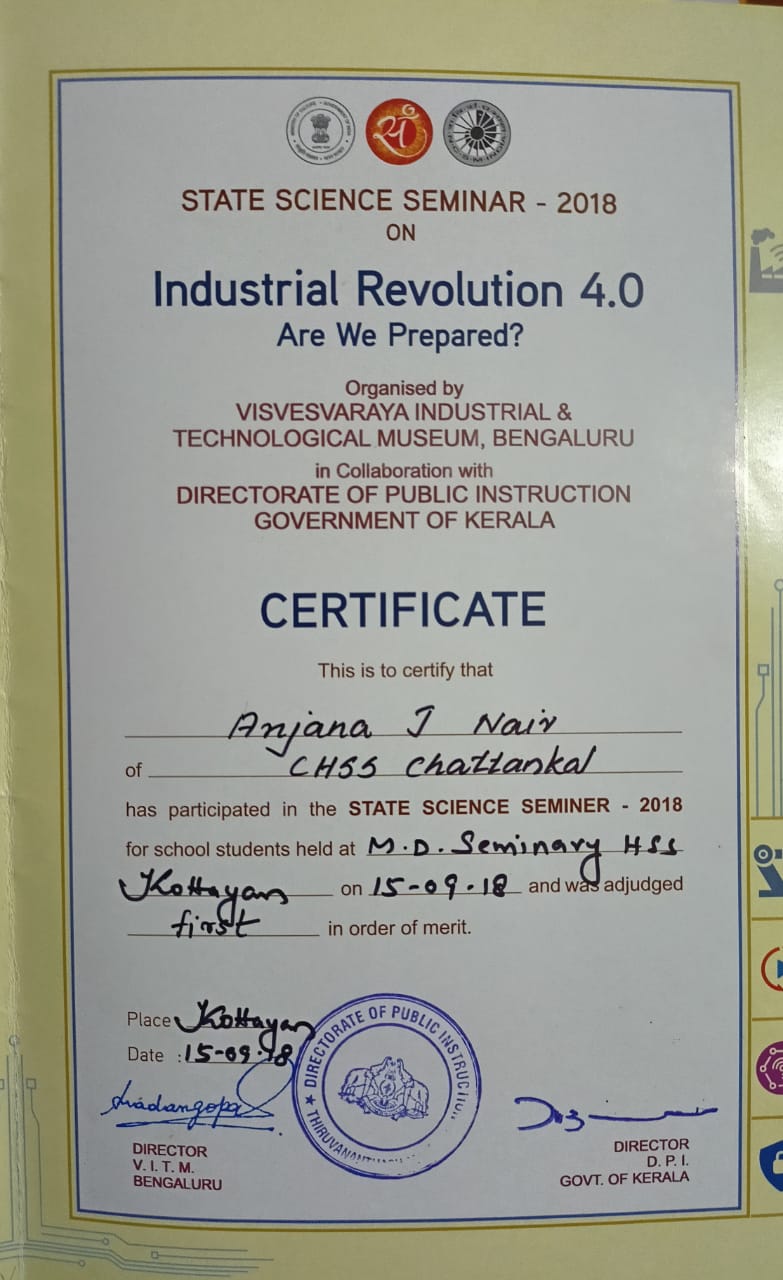 STATE SCIENCE SEMINAR - 2018
ON
Industrial Revolution 4.0
Are We Prepared?
Organised by
VISVESVARAYA INDUSTRIAL &
TECHNOLOGICAL MUSEUM, BENGALURU
in Collaboration with
DIRECTORATE OF PUBLIC INSTRUCTION
GOVERNMENT OF KERALA
CERTIFICATE
This is to certify that
Anjana J Nair
of CHSS Chattankal
has participated in the STATE SCIENCE SEMINER - 2018
for school students held at M.D. Seminary HSS
Kottayam on 15-09-18 and was adjudged
first in order of merit.
Place Kottayam
Date : 15-09-18
DIRECTORATE OF PUBLIC INSTRUCTION
DIRECTOR
V. I. T. M.
BENGALURU
DIRECTOR
D. P. I.
GOVT. OF KERALA